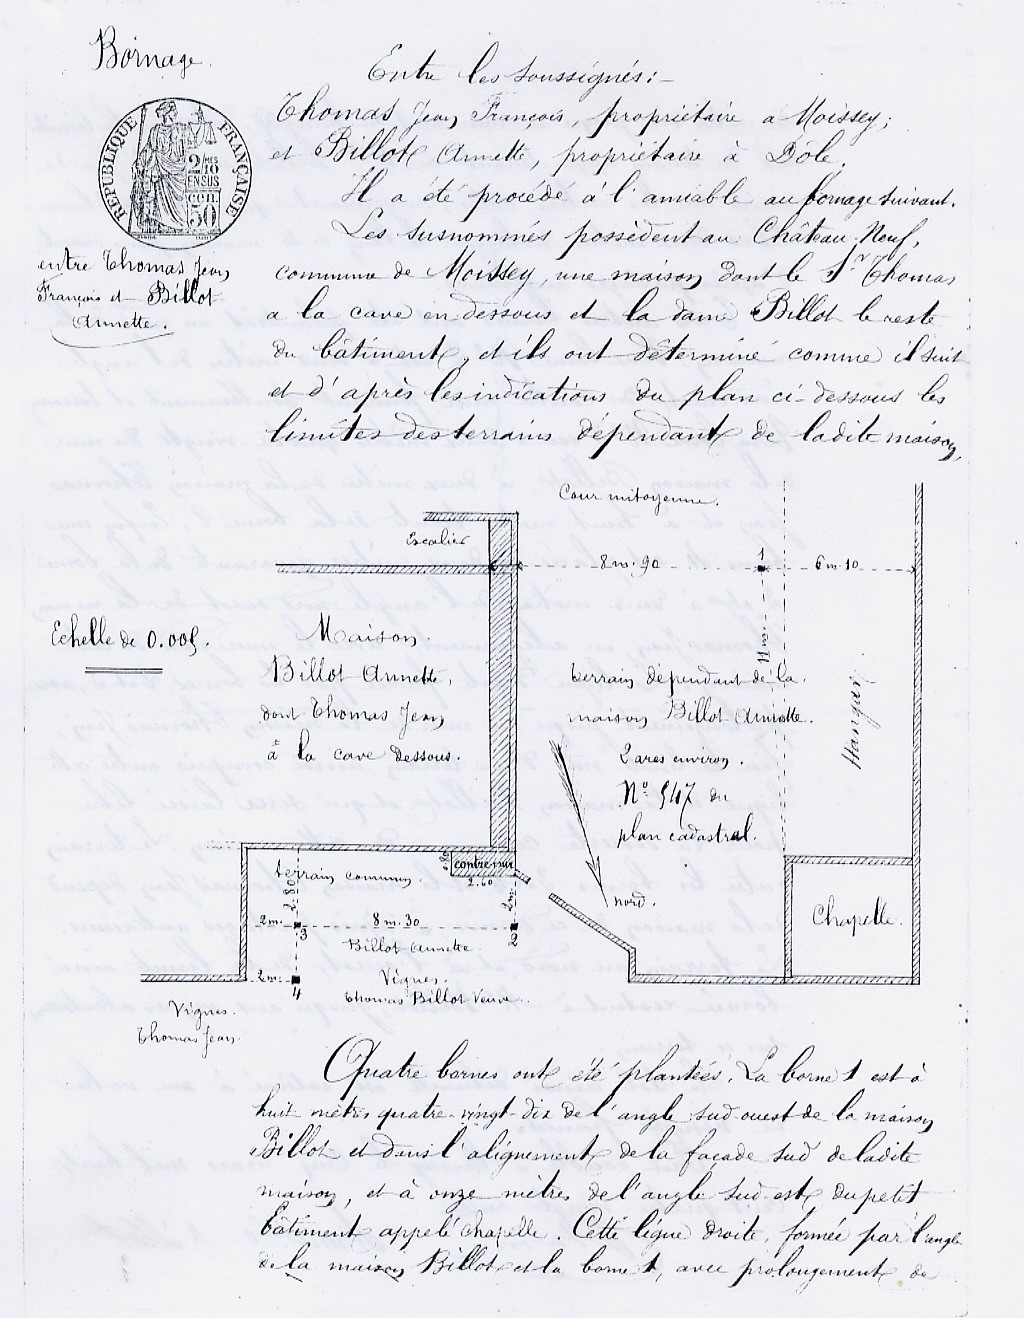 Bornage.
RÉPUBLIQUE FRANÇAISE
2/10
EN SUS
50
entre Thomas Jean
François et Billot
Annette.
Entre les soussignés :-
Thomas Jean François, propriétaire a Moissey ;
et Billot Annette, propriétaire à Dôle.
Il a été procédé à l'amiable au bornage suivant.
Les susnommés possèdent au Château-Neuf,
commune de Moissey, une maison dont le Sr Thomas
a la cave en dessous et la dame Billot le reste
du bâtiment, et ils ont déterminé comme il suit
et d'après les indications du plan ci-dessous les
limites des terrains dépendant de ladite maison.
Cour mitoyenne.
Escalier
8m.90
1
6m.10
Echelle de 0.005.
Maison
Billot Annette,
dont Thomas Jean
à la cave dessous.
11m.
terrain dépendant de la
maison Billot Annette.
2 ares environ.
No 547 du
plan cadastral.
Hangar
nord.
Chapelle.
terrain commun.
contremur
.80
2.60
2.80
2m.
8m.30
2m.
3
2
Billot Annette.
2m.
4
Vignes.
Thomas Billot Veuve.
Vignes.
Thomas Jean.
Quatre bornes ont été plantées. La borne 1 est à
huit mètres quatre-vingt-dix de l'angle sud-ouest de la maison
Billot et dans l'alignement de la façade sud de ladite
maison, et à onze mètres de l'angle sud-est du petit
bâtiment appelé chapelle. Cette ligne droite, formée par l'angle
de la maison Billot et la borne 1, avec prolongement de